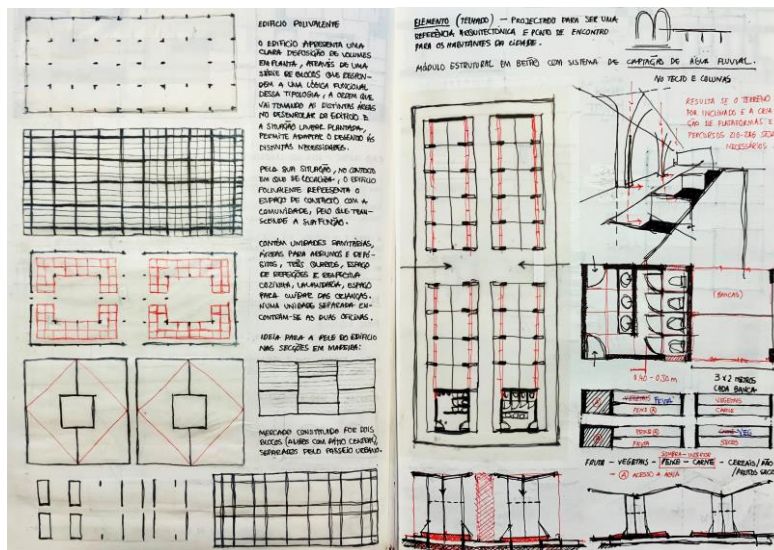 EDIFÍCIO POLIVALENTE
O EDIFÍCIO APRESENTA UMA
CLARA DISPOSIÇÃO DE VOLUMES
EM PLANTA, ATRAVÉS DE UMA
SÉRIE DE BLOCOS QUE RESPON-
DEM A UMA LÓGICA FUNCIONAL
DESSA TIPOLOGIA, A ORDEM QUE
VAI TOMANDO AS DISTINTAS ÁREAS
NO DESENROLAR DO EDIFÍCIO E
A SITUAÇÃO LINEAR PLANTEADA,
PERMITE ADAPTAR O DESENHO ÀS
DISTINTAS NECESSIDADES.
PELA SUA SITUAÇÃO, NO CONTEXTO
EM QUE SE LOCALIZA, O EDIFÍCIO
POLIVALENTE REPRESENTA O
ESPAÇO DE CONTACTO COM A
COMUNIDADE, PELO QUE TRAN-
SCENDE A SUA FUNÇÃO.
CONTÉM UNIDADES SANITÁRIAS,
ÁREAS PARA ARRUMOS E DEPÓ-
SITOS, TRÊS QUARTOS, ESPAÇO
DE REFEIÇÕES E RESPECTIVA
COZINHA, LAVANDARIA, ESPAÇO
PARA CUIDAR DAS CRIANÇAS.
NUMA UNIDADE SEPARADA EN-
CONTRAM-SE AS DUAS OFICINAS.
IDEIA PARA A PELE DO EDIFÍCIO
NAS SECÇÕES EM MADEIRA:
MERCADO CONSTITUÍDO POR DOIS
BLOCOS (AMBOS COM PÁTIO CENTRAL)
SEPARADOS PELO PASSEIO URBANO.
ELEMENTO (TELHADO) — PROJECTADO PARA SER UMA
REFERÊNCIA ARQUITECTÓNICA E PONTO DE ENCONTRO
PARA OS HABITANTES DA CIDADE.
MÓDULO ESTRUTURAL EM BETÃO COM SISTEMA DE CAPTAÇÃO DE ÁGUA PLUVIAL.
NO TECTO E COLUNAS
RESULTA SE O TERRENO
FOR INCLINADO E A CRIA
ÇÃO DE PLATAFORMAS E
PERCURSOS ZIG-ZAG SEJA
NECESSÁRIOS
(BANCAS)
0.40 - 0.50 m
3 x 2 METROS
CADA BANCA
VEGETAIS FRUTA
PEIXE A
VEGETAIS
CARNE
A
PEIXE A
FRUTA
VEG
SECOS
SOMBRA - INTERIOR
FRUTA - VEGETAIS - PEIXE - CARNE - CEREAIS / PÃO
/ FRUTOS SECOS
A ACESSO A ÁGUA